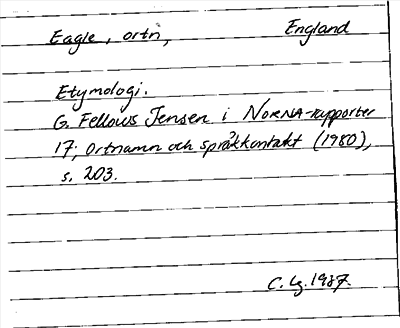 Eagle, ortn, England
Etymologi.
G. Fellows Jensen i NORNA-rapporter
17, Ortnamn och språkkontakt (1980),
s. 203.
C. Lg. 1987.